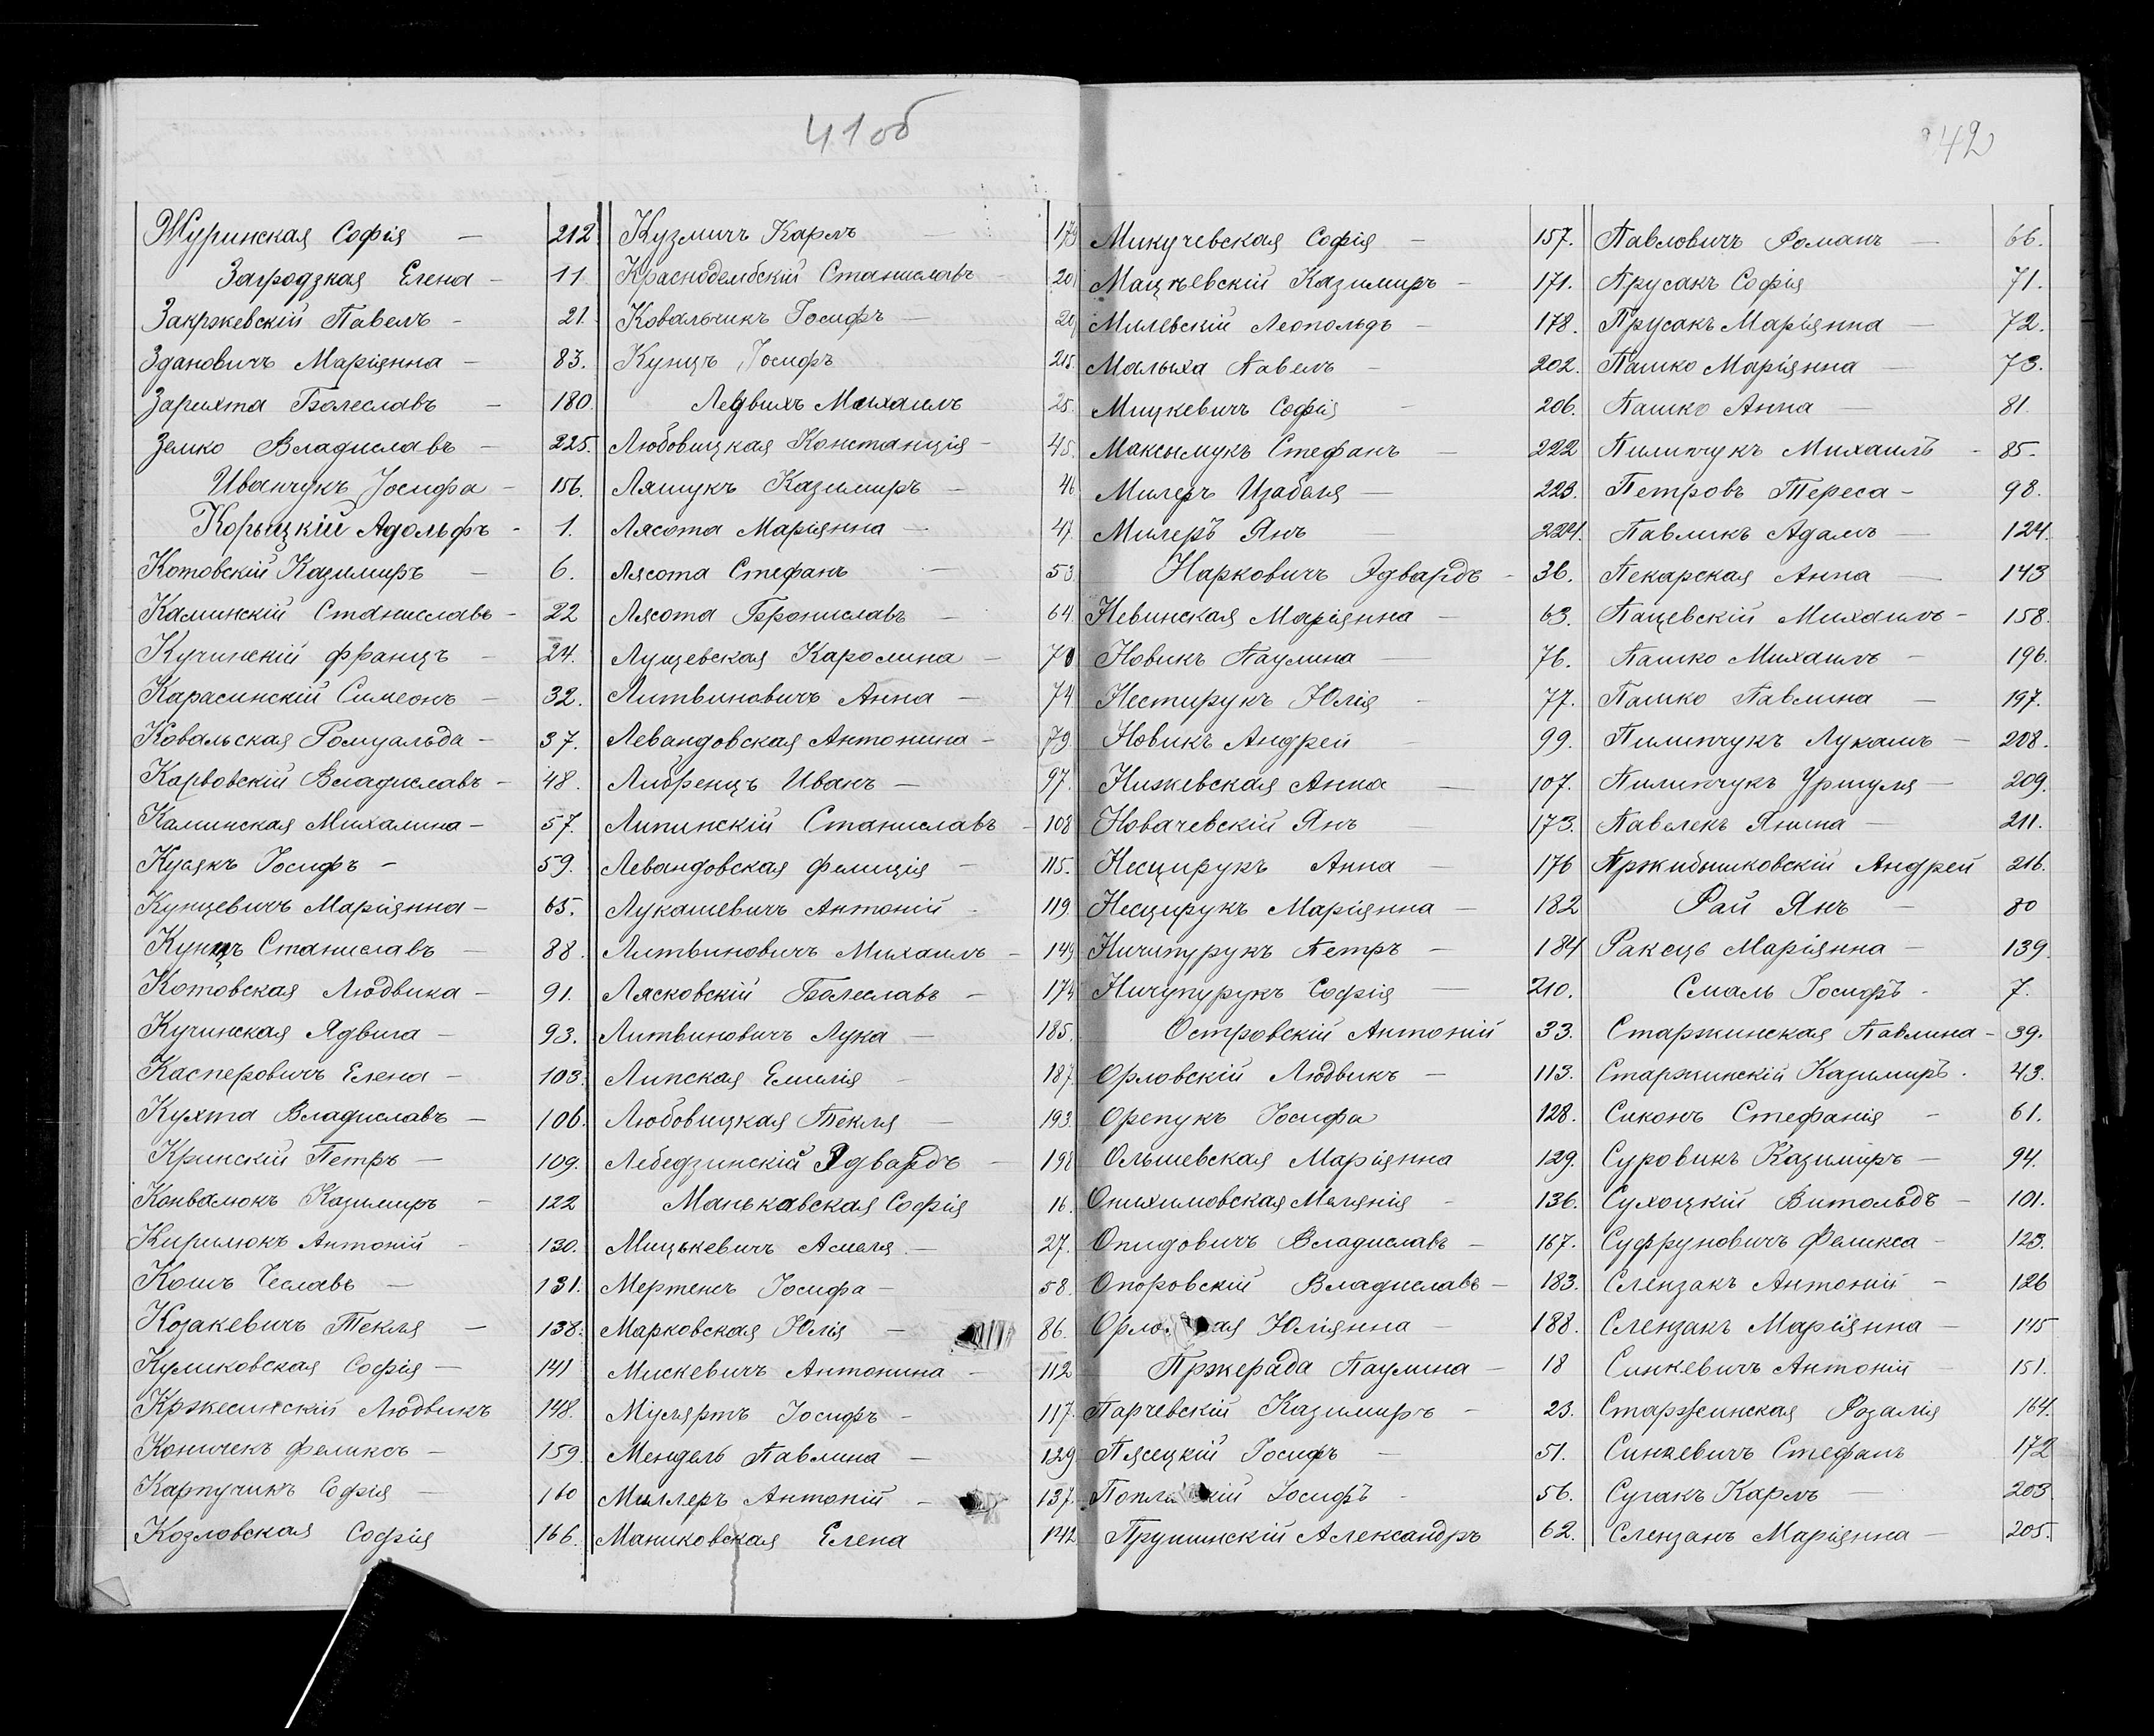 41об
42
Журинская Софія — 212
Загродзкая Елена — 11
Закржевскій Павелъ — 21.
Здановичъ Маріянна — 83.
Зарихта Болеславъ — 180.
Земко Владиславъ — 225.
Иванчукъ Іосифа — 156.
Корыцкій Адольфъ - 1.
Котовскій Казимиръ — 6.
Каминскій Станиславъ - 22
Кучинскій Францъ — 24.
Карасинскій Симеонъ — 32.
Ковальская Ромуальда - 37.
Карвовскій Владиславъ - 48.
Каминская Михалина — 57.
Кусякъ Іосифъ — 59.
Кунцевичъ Маріянна — 65.
Кунцъ Станиславъ — 88.
Котовская Людвика — 91.
Кучинская Ядвига — 93.
Касперовичъ Елена — 103.
Кухта Владиславъ — 106.
Кринскій Петръ — 109.
Конвалюкъ Казимиръ — 122
Кирилюкъ Антоній — 130.
Кошъ Чеславъ — 131.
Козакевичъ Текля — 138.
Куликовская Софія — 141
Кржесинскій Людвикъ 148.
Коничекъ Феликсъ — 159
Карпучикъ Софія — 160
Козловская Софія 166.
Кузмичъ Карлъ —
Краснодембскій Станиславъ -
Ковальчикъ Іосифъ —
Кунцъ Іосифъ 215.
Ледвихъ Михаилъ 25.
Любовицкая Констанція - 45.
Ляшукъ Казимиръ — 46
Лясота Маріянна — 47
Лясота Стефанъ — 53.
Лясота Брониславъ — 64.
Лущевская Каролина — 70
Литвиновичъ Анна — 74
Левандовская Антонина — 79.
Либренцъ Иванъ — 97.
Липинскій Станиславъ - 108
Левандовская Фелиція — 115.
Лукашевичъ Антоній - 119
Литвиновичъ Михаилъ - 149
Лясковскій Болеславъ — 174
Литвиновичъ Лука — 185.
Липская Емилія — 187.
Любовицкая Текля — 193.
Лебедзинскій Эдвардъ — 198
Маньковская Софія 16.
Мицькевичъ Амеля — 27.
Мертенсъ Іосифа — 58.
Марковская Юлія — 86.
Мискевичъ Антонина — 112
Мусяртъ Іосифъ — 117.
Мендель Павлина — 129
Миллеръ Антоній — 137.
Маниковская Елена 142
Микучевская Софія — 157.
Мацѣевскій Казимиръ — 171.
Милевскій Леопольдъ — 178.
Малыха Павелъ — 202.
Мицкевичъ Софія — 206.
Максымукъ Стефанъ — 222
Милеръ Изабеля — 223.
Милеръ Янъ — 224.
Наркович Эдвардъ - 36.
Невинская Маріянна — 63.
Новикъ Паулина — 76.
Нестирукъ Юлія — 77.
Новикъ Андрей — 99.
Нижевская Анна — 107.
Новачевскій Янъ — 173.
Несцирукъ Анна — 176
Несцирукъ Маріянна — 182
Ничипурукъ Петръ — 184
Ничупурукъ Софія — 210.
Островскій Антоній 33.
Орловскій Людвикъ — 113.
Орепукъ Іосифа 128.
Ольшевская Маріянна 129.
Онихимовская Меланія — 136.
Опидовичъ Владиславъ — 167.
Опоровскій Владиславъ — 183.
Юліянна — 188.
Пржерада Паулина — 18
Парчевскій Казимиръ — 23.
Плсецкій Іосифъ — 51.
Іосифъ - 56.
Прушинскій Александръ 62.
Павловичъ Романъ — 66.
Прусакъ Софія 71.
Прусакъ Маріянна — 72.
Пашко Маріянна — 73.
Пашко Анна — 81.
Пилипчукъ Михаилъ - 85.
Петровъ Тереса — 98.
Павликъ Адамъ — 124.
Пекарская Анна — 143
Пацевскій Михаилъ — 158.
Пашко Михаилъ — 196.
Пашко Павлина — 197.
Пилипчукъ Лукашъ — 208.
Пилипчукъ Уршуля — 209.
Павлекъ Янина — 211.
Пржибышковскій Андрей 216.
Рай Янъ — 80
Ракецъ Маріянна — 139.
Смаль Іосифъ - 7.
Старжинская Павлина — 39.
Старжинскій Казимиръ. 43.
Сиконъ Стефанія — 61.
Суровикъ Казимиръ — 94.
Сухоцкій Витольдъ — 101.
Суфруновичъ Феликса — 123.
Слензакъ Антоній — 126
Слензакъ Маріянна — 145
Синкевичъ Антоній — 151.
Старжинская Розалія 164.
Синкевичъ Стефанъ 172
Сугакъ Карлъ — 203
Слензакъ Маріянна — 205.